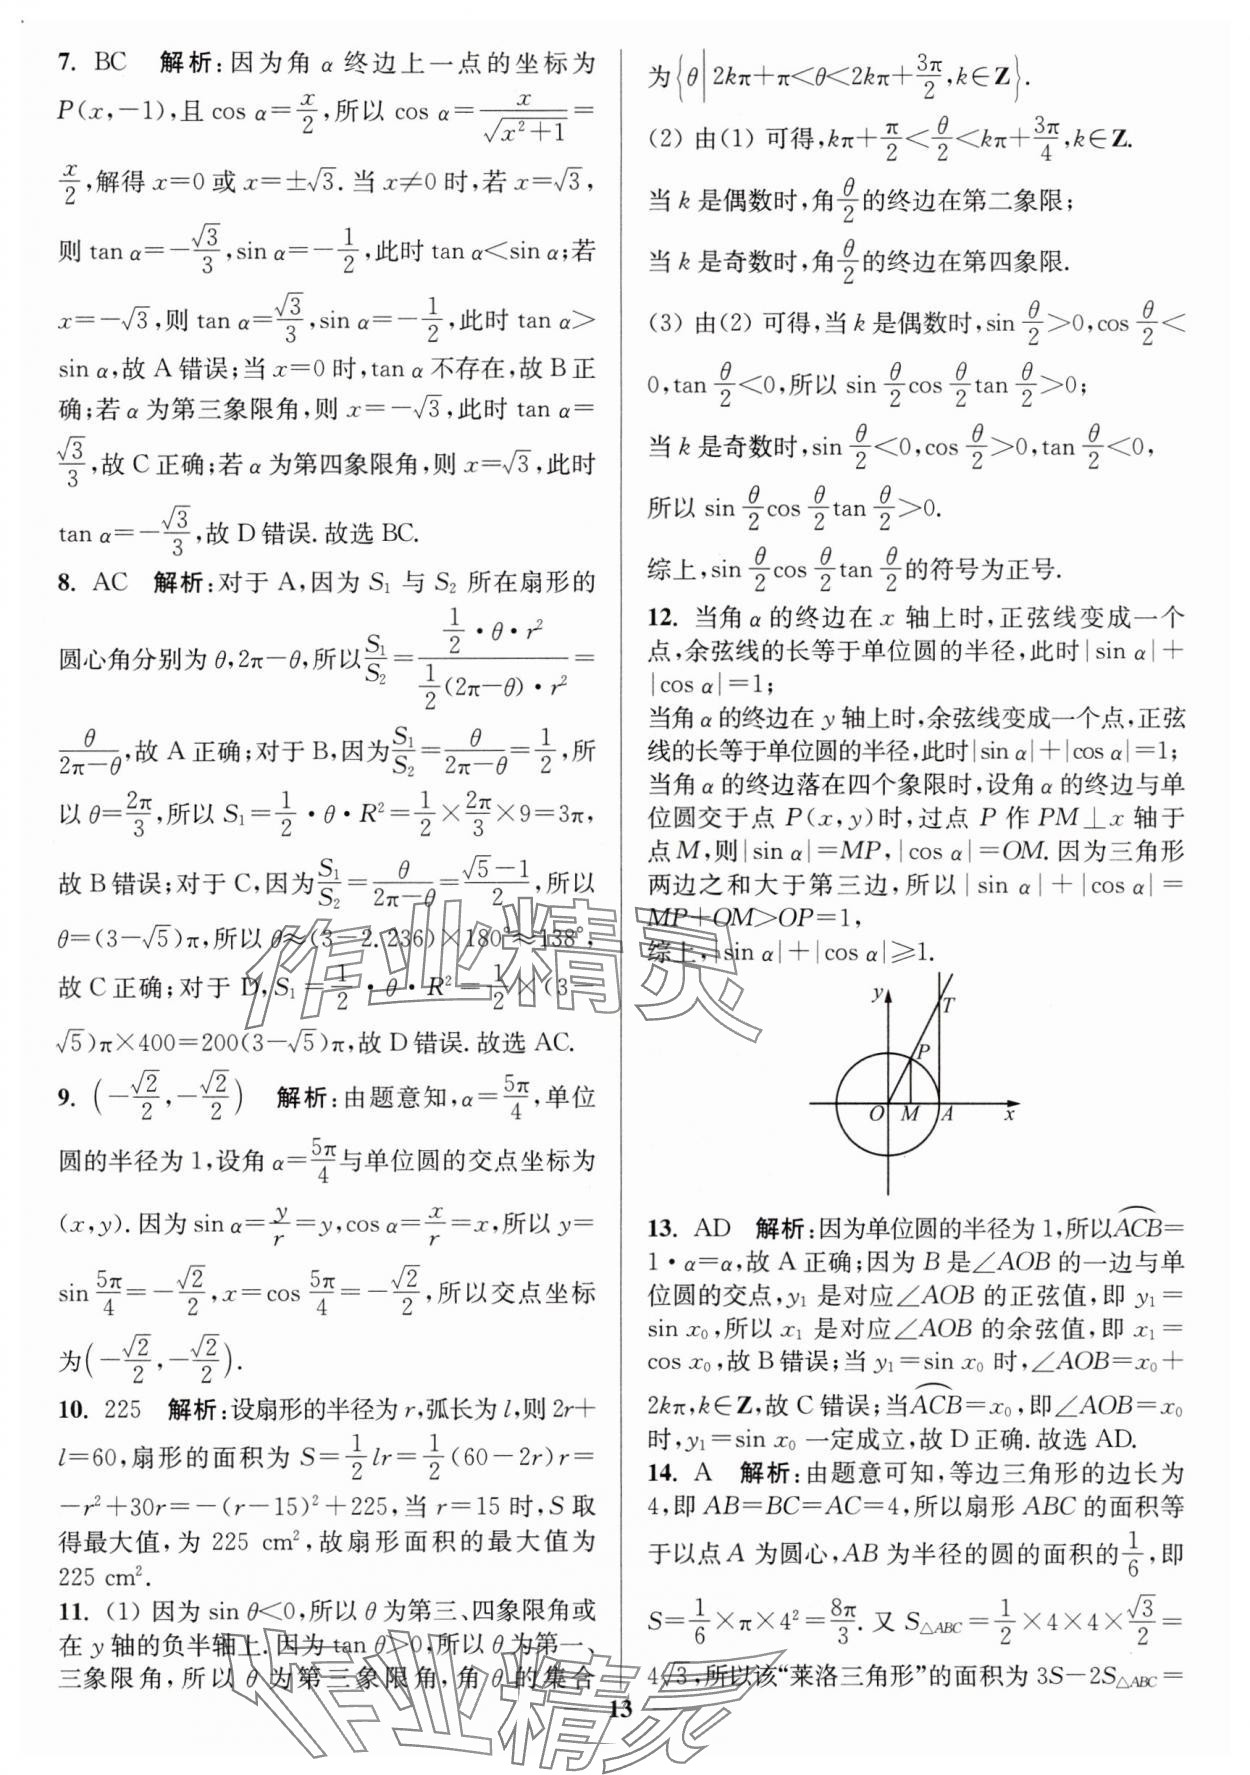 7. BC 解析:因为角 α 终边上一点的坐标为
P(x,-1),且 cos α=x/2,所以 cos α=x/√(x²+1)=
x/2,解得 x=0 或 x=±√3. 当 x≠0 时,若 x=√3,
则 tan α=-√3/3,sin α=-1/2,此时 tan α<sin α;若
x=-√3,则 tan α=√3/3,sin α=-1/2,此时 tan α>
sin α,故 A 错误;当 x=0 时,tan α 不存在,故 B 正
确;若 α 为第三象限角,则 x=-√3,此时 tan α=
√3/3,故 C 正确;若 α 为第四象限角,则 x=√3,此时
tan α=-√3/3,故 D 错误. 故选 BC.
8. AC 解析:对于 A,因为 S₁ 与 S₂ 所在扇形的
圆心角分别为 θ,2π-θ,所以 S₁/S₂=(1/2·θ·r²)/(1/2(2π-θ)·r²)=
θ/(2π-θ),故 A 正确;对于 B,因为 S₁/S₂=θ/(2π-θ)=1/2,所
以 θ=2π/3,所以 S₁=1/2·θ·R²=1/2×2π/3×9=3π,
故 B 错误;对于 C,因为 S₁/S₂=θ/(2π-θ)=(√5-1)/2,所以
θ=(3-√5)π,所以 θ≈(3-2.236)×180°≈138°,
故 C 正确;对于 D,S₁=1/2·θ·R²=1/2×(3-
√5)π×400=200(3-√5)π,故 D 错误. 故选 AC.
9. (-√2/2,-√2/2) 解析:由题意知,α=5π/4,单位
圆的半径为 1,设角 α=5π/4 与单位圆的交点坐标为
(x,y). 因为 sin α=y/r=y,cos α=x/r=x,所以 y=
sin 5π/4=-√2/2,x=cos 5π/4=-√2/2,所以交点坐标
为(-√2/2,-√2/2).
10. 225 解析:设扇形的半径为 r,弧长为 l,则 2r+
l=60,扇形的面积为 S=1/2 lr=1/2(60-2r)r=
-r²+30r=-(r-15)²+225,当 r=15 时,S 取
得最大值,为 225 cm²,故扇形面积的最大值为
225 cm².
11. (1) 因为 sin θ<0,所以 θ 为第三、四象限角或
在 y 轴的负半轴上. 因为 tan θ>0,所以 θ 为第一、
三象限角,所以 θ 为第三象限角,角 θ 的集合
为{θ|2kπ+π<θ<2kπ+3π/2,k∈Z}.
(2) 由(1) 可得,kπ+π/2<θ/2<kπ+3π/4,k∈Z.
当 k 是偶数时,角 θ/2 的终边在第二象限;
当 k 是奇数时,角 θ/2 的终边在第四象限.
(3) 由(2) 可得,当 k 是偶数时,sin θ/2>0,cos θ/2<
0,tan θ/2<0,所以 sin θ/2 cos θ/2 tan θ/2>0;
当 k 是奇数时,sin θ/2<0,cos θ/2>0,tan θ/2<0,
所以 sin θ/2 cos θ/2 tan θ/2>0.
综上,sin θ/2 cos θ/2 tan θ/2 的符号为正号.
12. 当角 α 的终边在 x 轴上时,正弦线变成一个
点,余弦线的长等于单位圆的半径,此时|sin α|+
|cos α|=1;
当角 α 的终边在 y 轴上时,余弦线变成一个点,正弦
线的长等于单位圆的半径,此时|sin α|+|cos α|=1;
当角 α 的终边落在四个象限时,设角 α 的终边与单
位圆交于点 P(x,y)时,过点 P 作 PM⊥x 轴于
点 M,则|sin α|=MP,|cos α|=OM. 因为三角形
两边之和大于第三边,所以|sin α|+|cos α|=
MP+OM>OP=1,
综上,|sin α|+|cos α|≥1.
y
T
P
O M A x
13. AD 解析:因为单位圆的半径为 1,所以⌒ACB=
1·α=α,故 A 正确;因为 B 是∠AOB 的一边与单
位圆的交点,y₁ 是对应∠AOB 的正弦值,即 y₁=
sin x₀,所以 x₁ 是对应∠AOB 的余弦值,即 x₁=
cos x₀,故 B 错误;当 y₁=sin x₀ 时,∠AOB=x₀+
2kπ,k∈Z,故 C 错误;当⌒ACB=x₀,即∠AOB=x₀
时,y₁=sin x₀ 一定成立,故 D 正确. 故选 AD.
14. A 解析:由题意可知,等边三角形的边长为
4,即 AB=BC=AC=4,所以扇形 ABC 的面积等
于以点 A 为圆心,AB 为半径的圆的面积的 1/6,即
S=1/6×π×4²=8π/3. 又 S△ABC=1/2×4×4×√3/2=
4√3,所以该“莱洛三角形”的面积为 3S-2S△ABC=
13
作业精灵
作业精灵